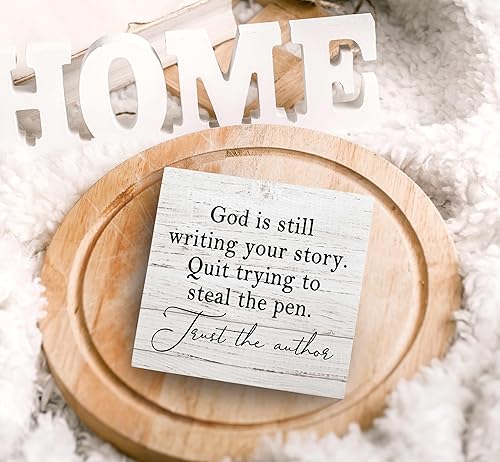 HOME
God is still
writing your story.
Quit trying to
steal the pen.
Trust the author